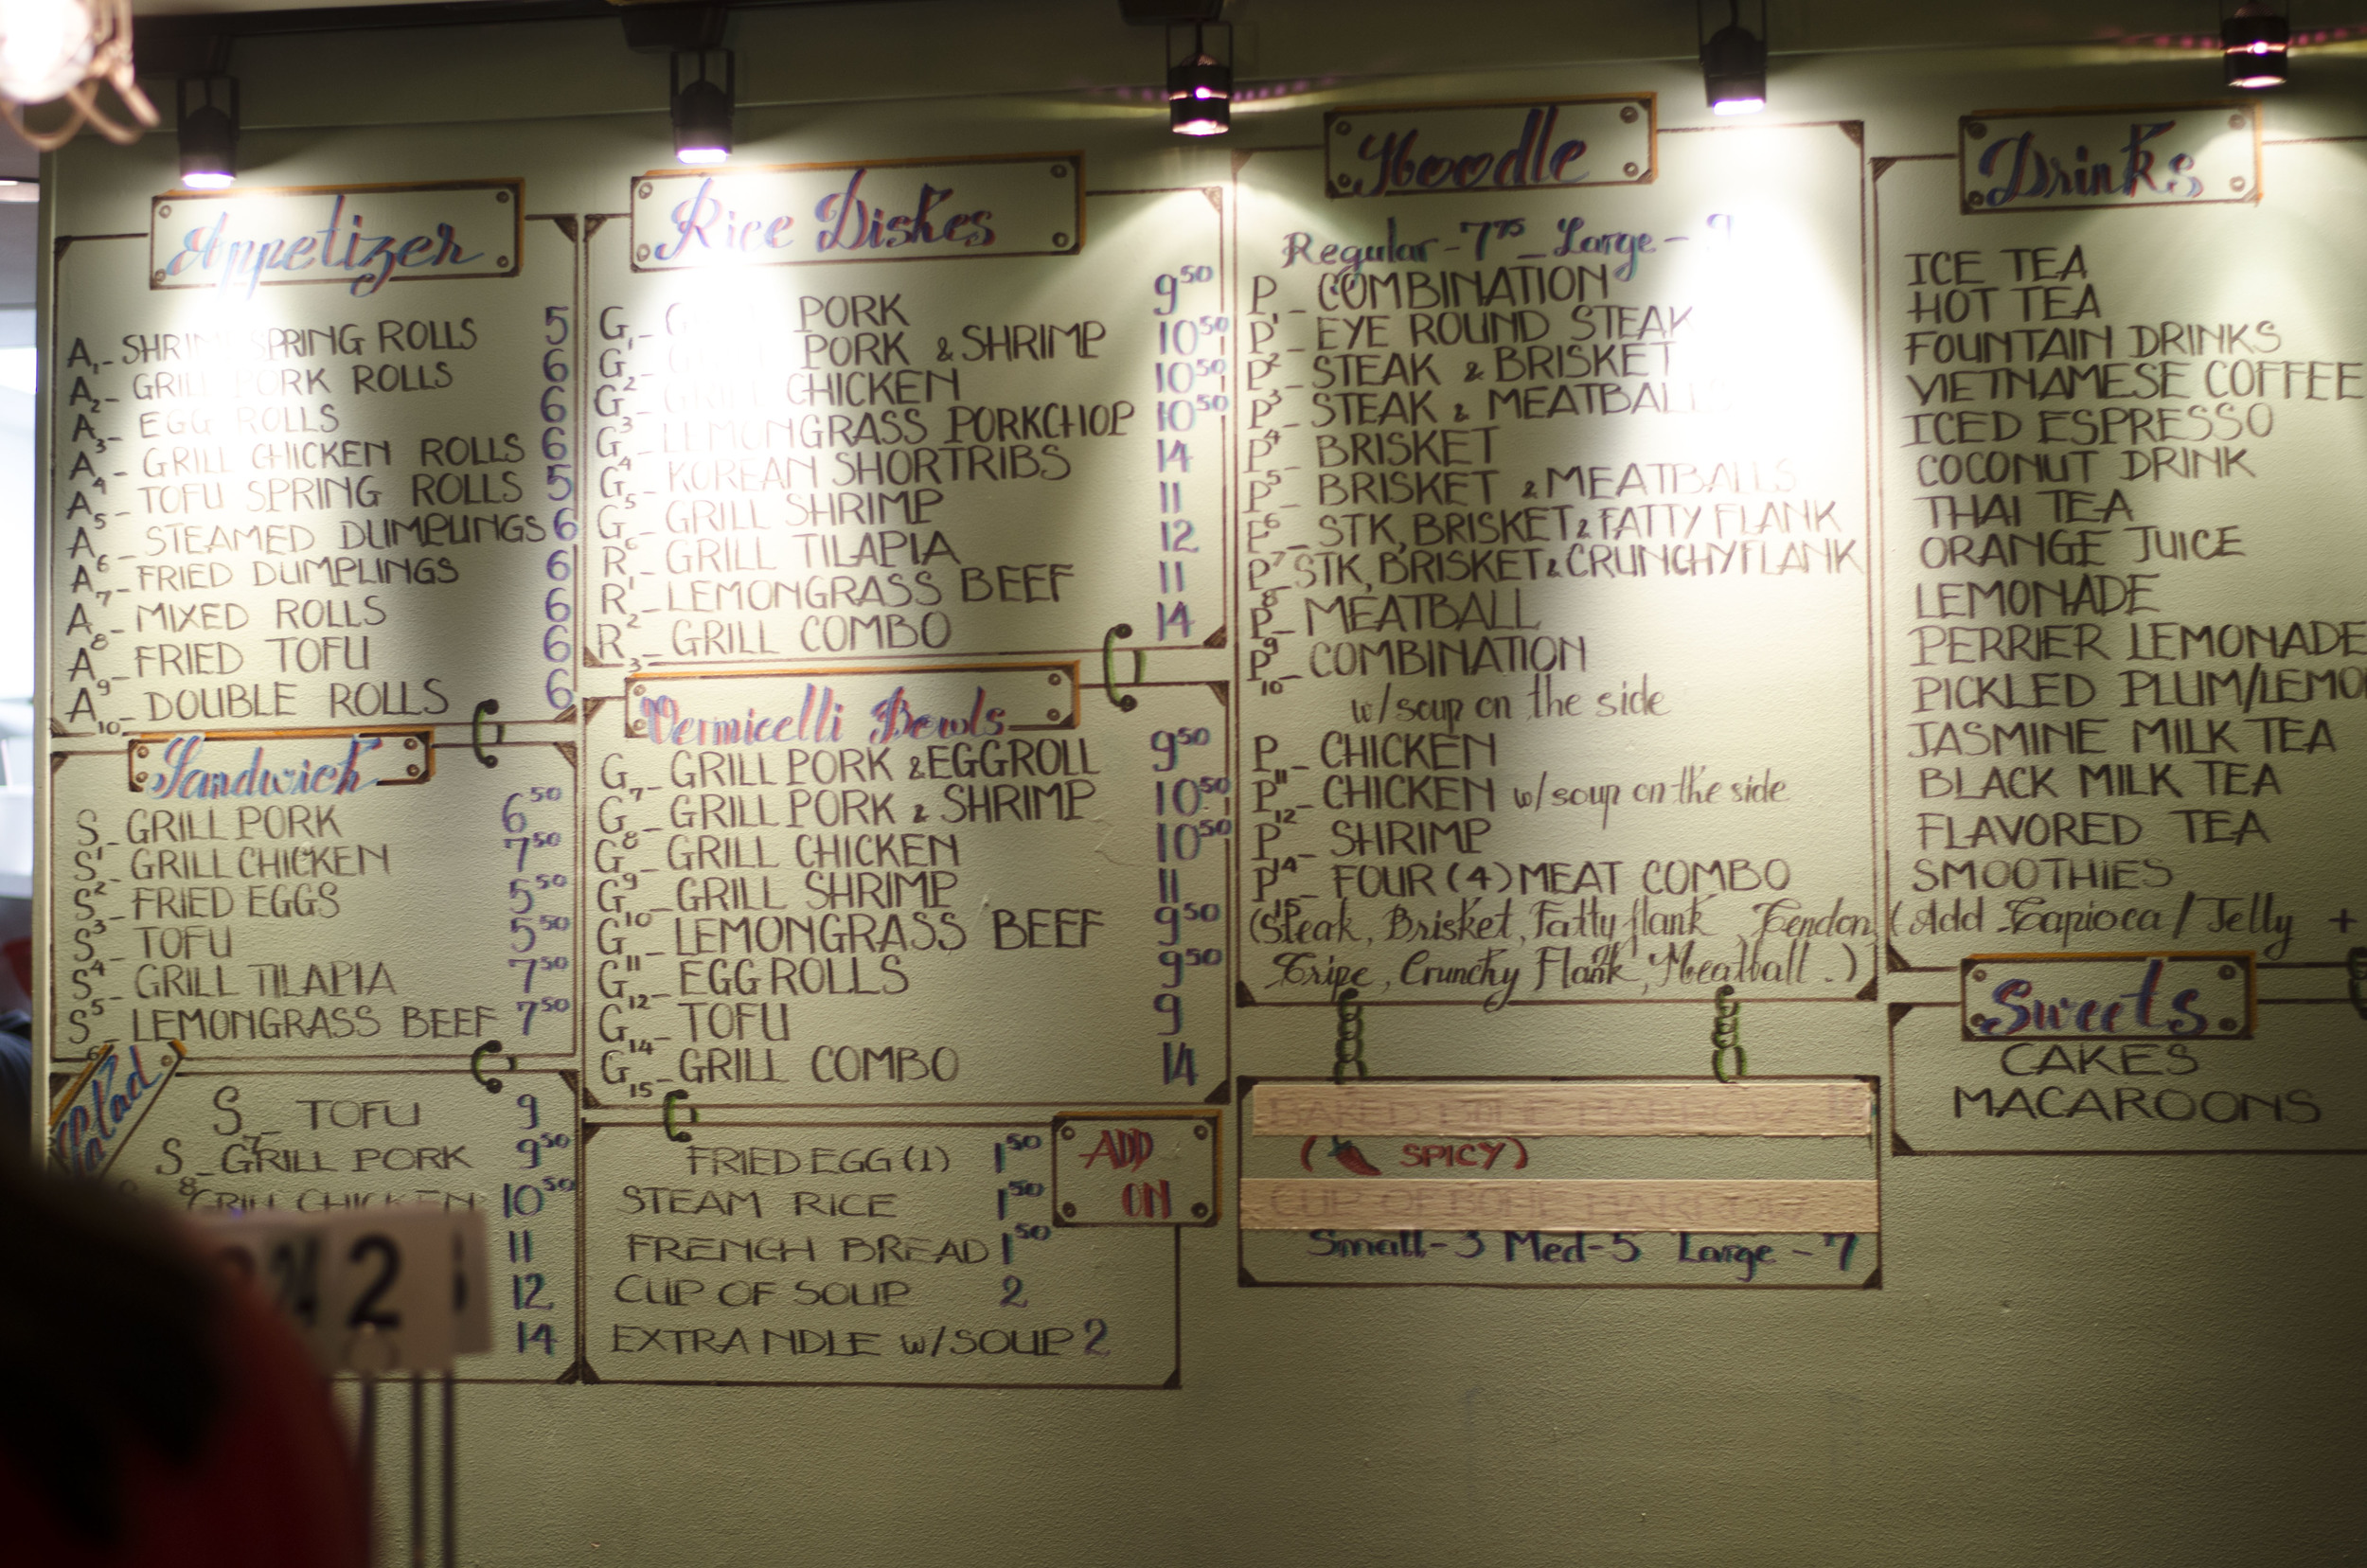 Appetizer
A1- SHRIMP SPRING ROLLS 5
A2- GRILL PORK ROLLS 6
A3- EGG ROLLS 6
A4- GRILL CHICKEN ROLLS 6
A5- TOFU SPRING ROLLS 5
A6- STEAMED DUMPLINGS 6
A7- FRIED DUMPLINGS 6
A8- MIXED ROLLS 6
A9- FRIED TOFU 6
A10- DOUBLE ROLLS 6
Sandwich
S1- GRILL PORK 6 50
S2- GRILL CHICKEN 7 50
S3- FRIED EGGS 5 50
S4- TOFU 5 50
S5- GRILL TILAPIA 7 50
S6- LEMONGRASS BEEF 7 50
Salad
S7- TOFU 9
S8- GRILL PORK 9 50
GRILL CHICKEN 10 50
11
12
14
2
Rice Dishes
G1- PORK 9 50
G2- PORK & SHRIMP 10 50
G3- GRILL CHICKEN 10 50
G4- LEMONGRASS PORKCHOP 10 50
G5- KOREAN SHORTRIBS 14
G6- GRILL SHRIMP 11
R1- GRILL TILAPIA 12
R2- LEMONGRASS BEEF 11
R3- GRILL COMBO 14
Vermicelli Bowls
G7- GRILL PORK & EGGROLL 9 50
G8- GRILL PORK & SHRIMP 10 50
G9- GRILL CHICKEN 10 50
G10- GRILL SHRIMP 11
G11- LEMONGRASS BEEF 9 50
G12- EGG ROLLS 9 50
G14- TOFU 9
G15- GRILL COMBO 14
ADD ON
FRIED EGG (1) 1 50
STEAM RICE 1 50
FRENCH BREAD 1 50
CUP OF SOUP 2
EXTRA NDLE w/SOUP 2
Noodle
Regular - 7 75 - Large - 9
P1- COMBINATION
P2- EYE ROUND STEAK
P3- STEAK & BRISKET
P4- STEAK & MEATBALLS
P5- BRISKET
P6- BRISKET & MEATBALLS
P7- STK, BRISKET & FATTY FLANK
P8- STK, BRISKET & CRUNCHY FLANK
P9- MEATBALL
P10- COMBINATION
w/soup on the side
P11- CHICKEN
P12- CHICKEN w/soup on the side
P14- SHRIMP
P15- FOUR (4) MEAT COMBO
(Steak, Brisket, Fatty flank, Tendon,
Tripe, Crunchy Flank, Meatball.)
BAKED BONE MARROW
(SPICY)
CUP OF BONE MARROW
Small-3 Med-5 Large-7
Drinks
ICE TEA
HOT TEA
FOUNTAIN DRINKS
VIETNAMESE COFFEE
ICED ESPRESSO
COCONUT DRINK
THAI TEA
ORANGE JUICE
LEMONADE
PERRIER LEMONADE
PICKLED PLUM/LEMO
JASMINE MILK TEA
BLACK MILK TEA
FLAVORED TEA
SMOOTHIES
(Add Tapioca / Jelly +
Sweets
CAKES
MACAROONS